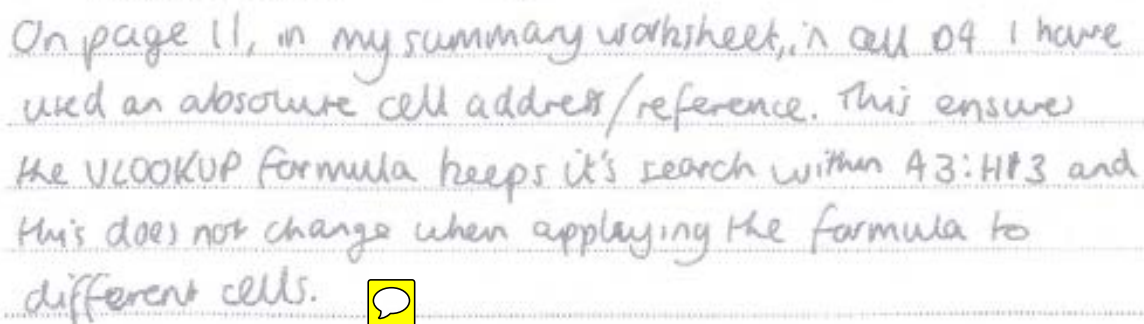 On page 11, in my summary worksheet, in cell D4 I have
used an absolute cell address/reference. This ensures
the VLOOKUP formula keeps it's search within A3:H13 and
this does not change when applaying the formula to
different cells.